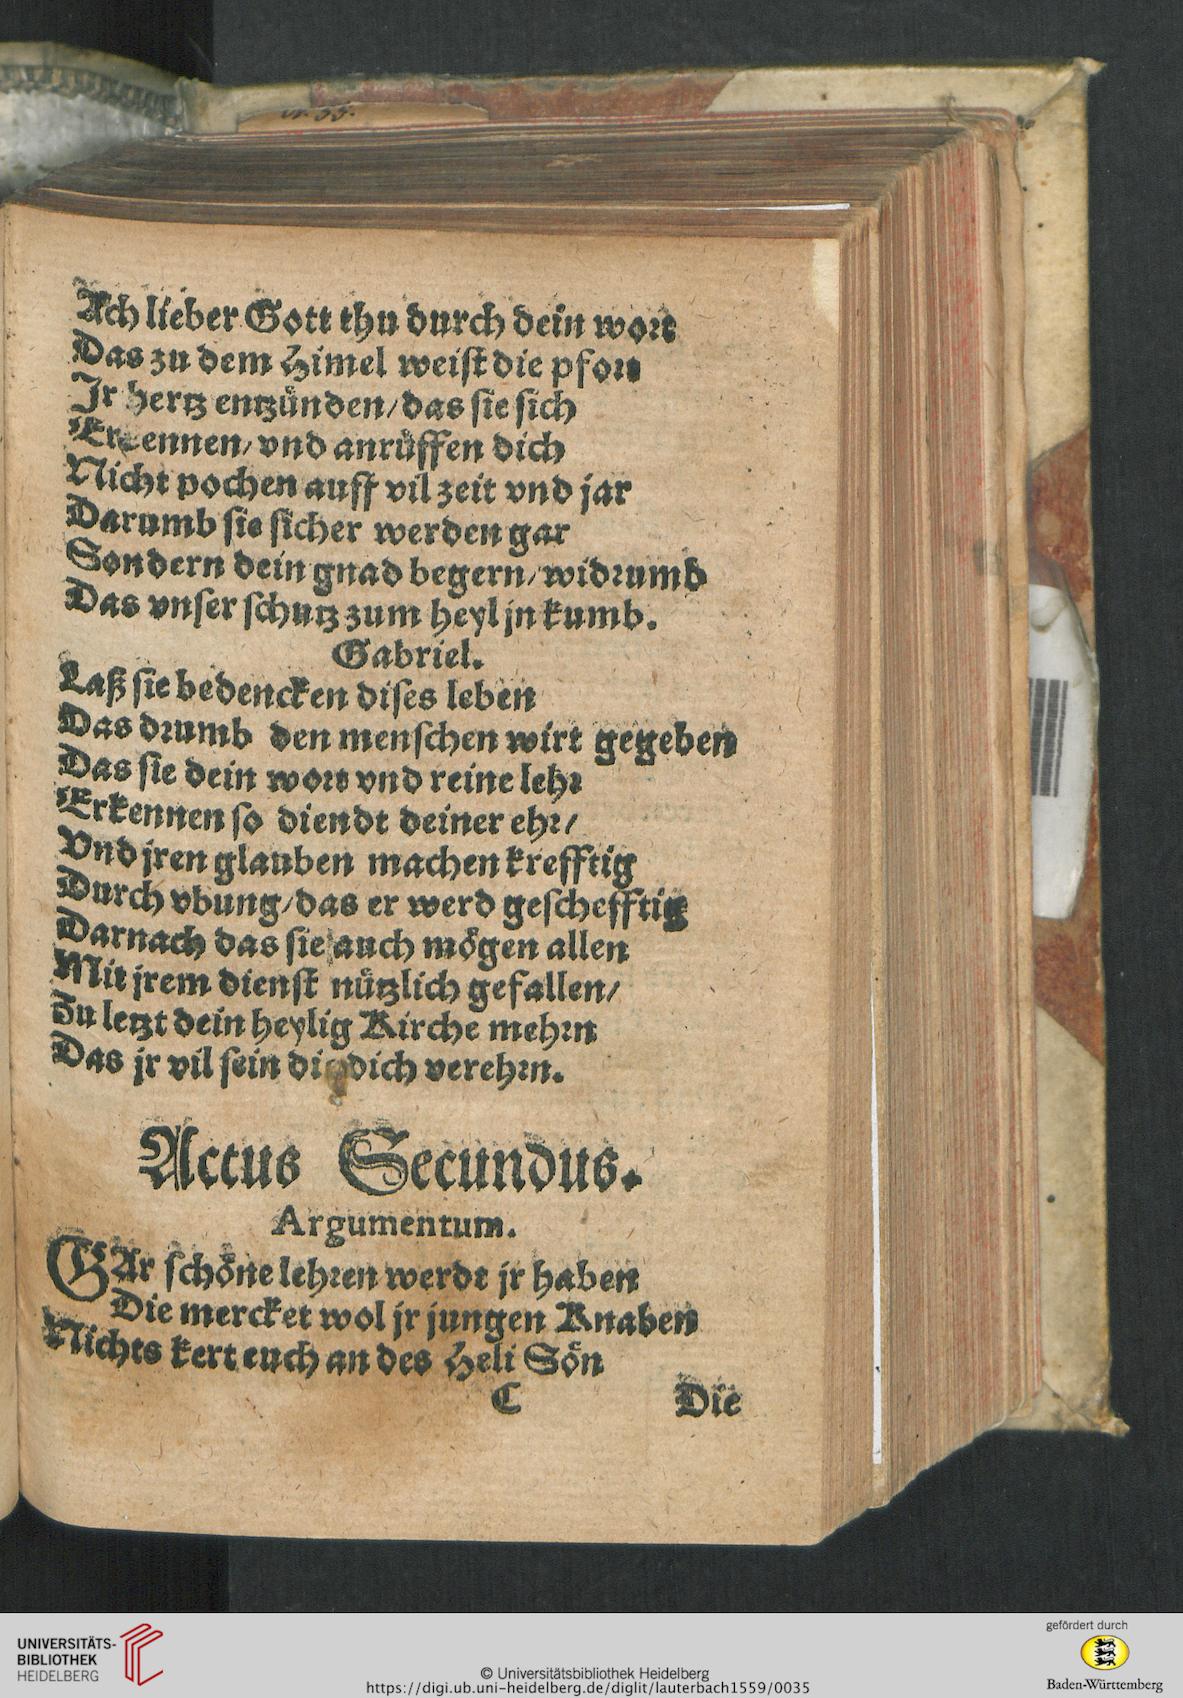 Ach lieber Gott thu durch dein wort
Das zu dem Himel weist die pfort
Jr hertz entzünden/das sie sich
Erkennen/vnd anrüffen dich
Nicht pochen auff vil zeit vnd jar
Darumb sie sicher werden gar
Sondern dein gnad begern/widrumb
Das vnser schutz zum heyl jn kumb.
Gabriel.
Laß sie bedencken dises leben
Das drumb den menschen wirt gegeben
Das sie dein wort vnd reine lehr
Erkennen so diendt deiner ehr/
Vnd jren glauben machen krefftig
Durch vbung/das er werd geschefftig
Darnach das sie auch mögen allen
Mit jrem dienst nützlich gefallen/
Zu letzt dein heylig Kirche mehrn
Das jr vil sein die dich verehrn.
Actus Secundus.
Argumentum.
GAr schöne lehren werdt jr haben
Die mercket wol jr jungen Knaben
Nichts kert euch an des Heli Sön
C Die
UNIVERSITÄTS-
BIBLIOTHEK
HEIDELBERG
© Universitätsbibliothek Heidelberg
https://digi.ub.uni-heidelberg.de/diglit/lauterbach1559/0035
gefördert durch
Baden-Württemberg